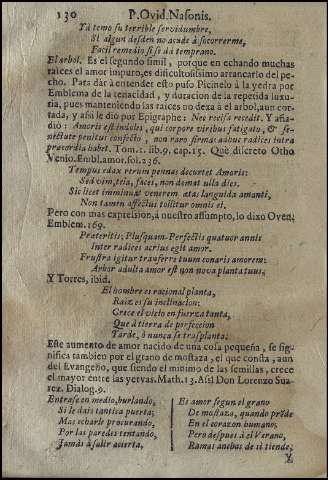 130 P. Ovid. Nasonis.
Ya temo su terrible servidumbre,
Si algun desden no acude à socorrerme,
Facil remedio si se dà temprano.
El arbol. Es el segundo simil, porque en echando muchas
raìces el amor impuro, es dificultosissimo arrancarlo del pe-
cho. Para dàr à entender esto puso Picinelo à la yedra por
Emblema de la tenacidad, y duracion de la repetida luxu-
ria, pues manteniendo las raìces no dexa à el arbol, aun cor-
tada, y assi le diò por Epigraphe: Nec recisa recedit. Y aña-
diò: Amoris est indoles, qui corpore viribus fatigato, & se-
nectute penitus confecto, non raro firmas adhuc radices intra
præcordia habet. Tom. 1. lib. 9. cap. 15. Què discreto Otho
Venio. Embl. amor. fol. 236.
Tempus edax rerum pennas decurtet Amoris:
Sed vim, tela, faces, non demat ulla dies.
Sic licet imminuat venerem ætas languida amanti,
Non tamen affectus tollitur omnis ei.
Pero con mas expression, à nuestro assumpto, lo dixo Oven,
Emblem. 169.
Præteritis; Plusquam-Perfectis quatuor annis
Inter radices acrius egit amor.
Frustra igitur transferre tuum conaris amorem:
Arbor adulta amor est non nova planta tuus,
Y Torres, ibid.
El hombre es racional planta,
Raiz es su inclinacion:
Crece el vicio en fuerza tanta,
Que à tierra de perfeccion
Tarde, ò nunca se trasplanta.
Este aumento de amor nacido de una cosa pequeña, se sig-
nifica tambien por el grano de mostaza, el que consta, aun
del Evangelio, que siendo el minimo de las semillas, crece
el mayor entre las yervas. Math. 13. Assi Don Lorenzo Sua-
rez. Dialog. 9.
Entrase en medio, burlando,
Si le dais tantica puerta;
Mas echarle procurando,
Por las paredes tentando,
Jamàs à salir acierta,
Es amor segun el grano
De mostaza, quando prẽde
En el corazon humano,
Pero despues à el Verano,
Ramas anchas de sì tiende.
Y